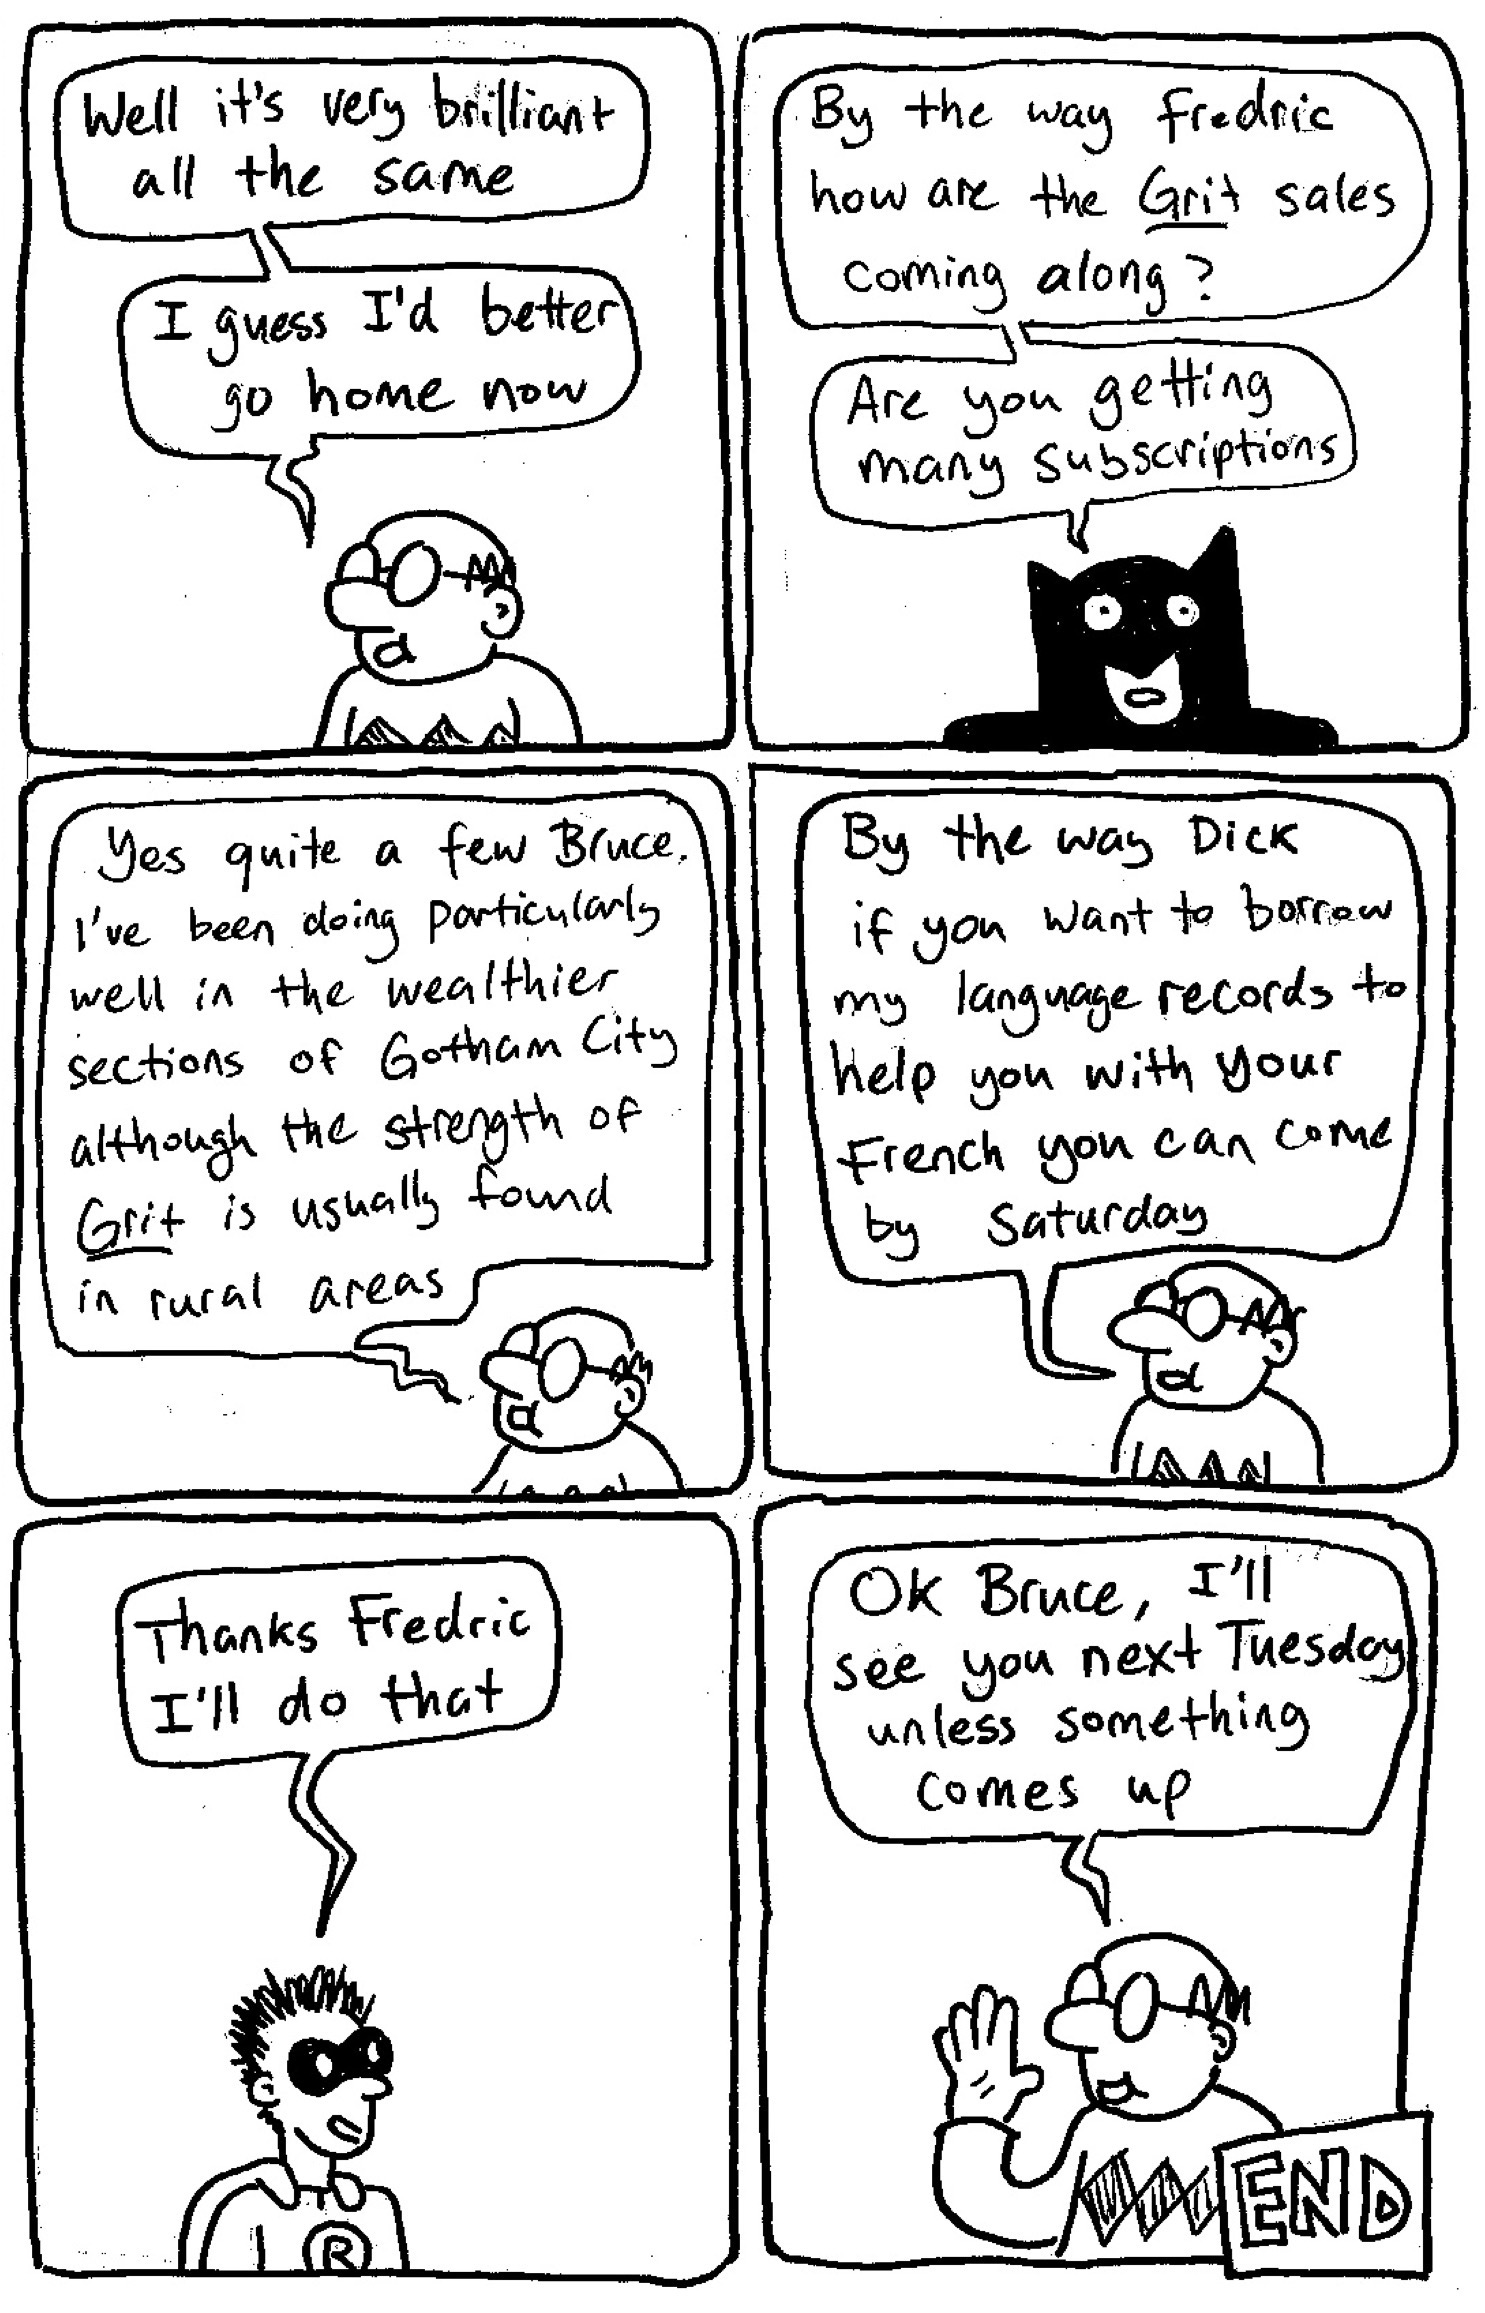 Well it's very brilliant
all the same
I guess I'd better
go home now
By the way Fredric
how are the Grit sales
coming along?
Are you getting
many subscriptions
Yes quite a few Bruce.
I've been doing particularly
well in the wealthier
sections of Gotham City
although the strength of
Grit is usually found
in rural areas
By the way Dick
if you want to borrow
my language records to
help you with your
French you can come
by Saturday
Thanks Fredric
I'll do that
R
Ok Bruce, I'll
see you next Tuesday
unless something
comes up
END